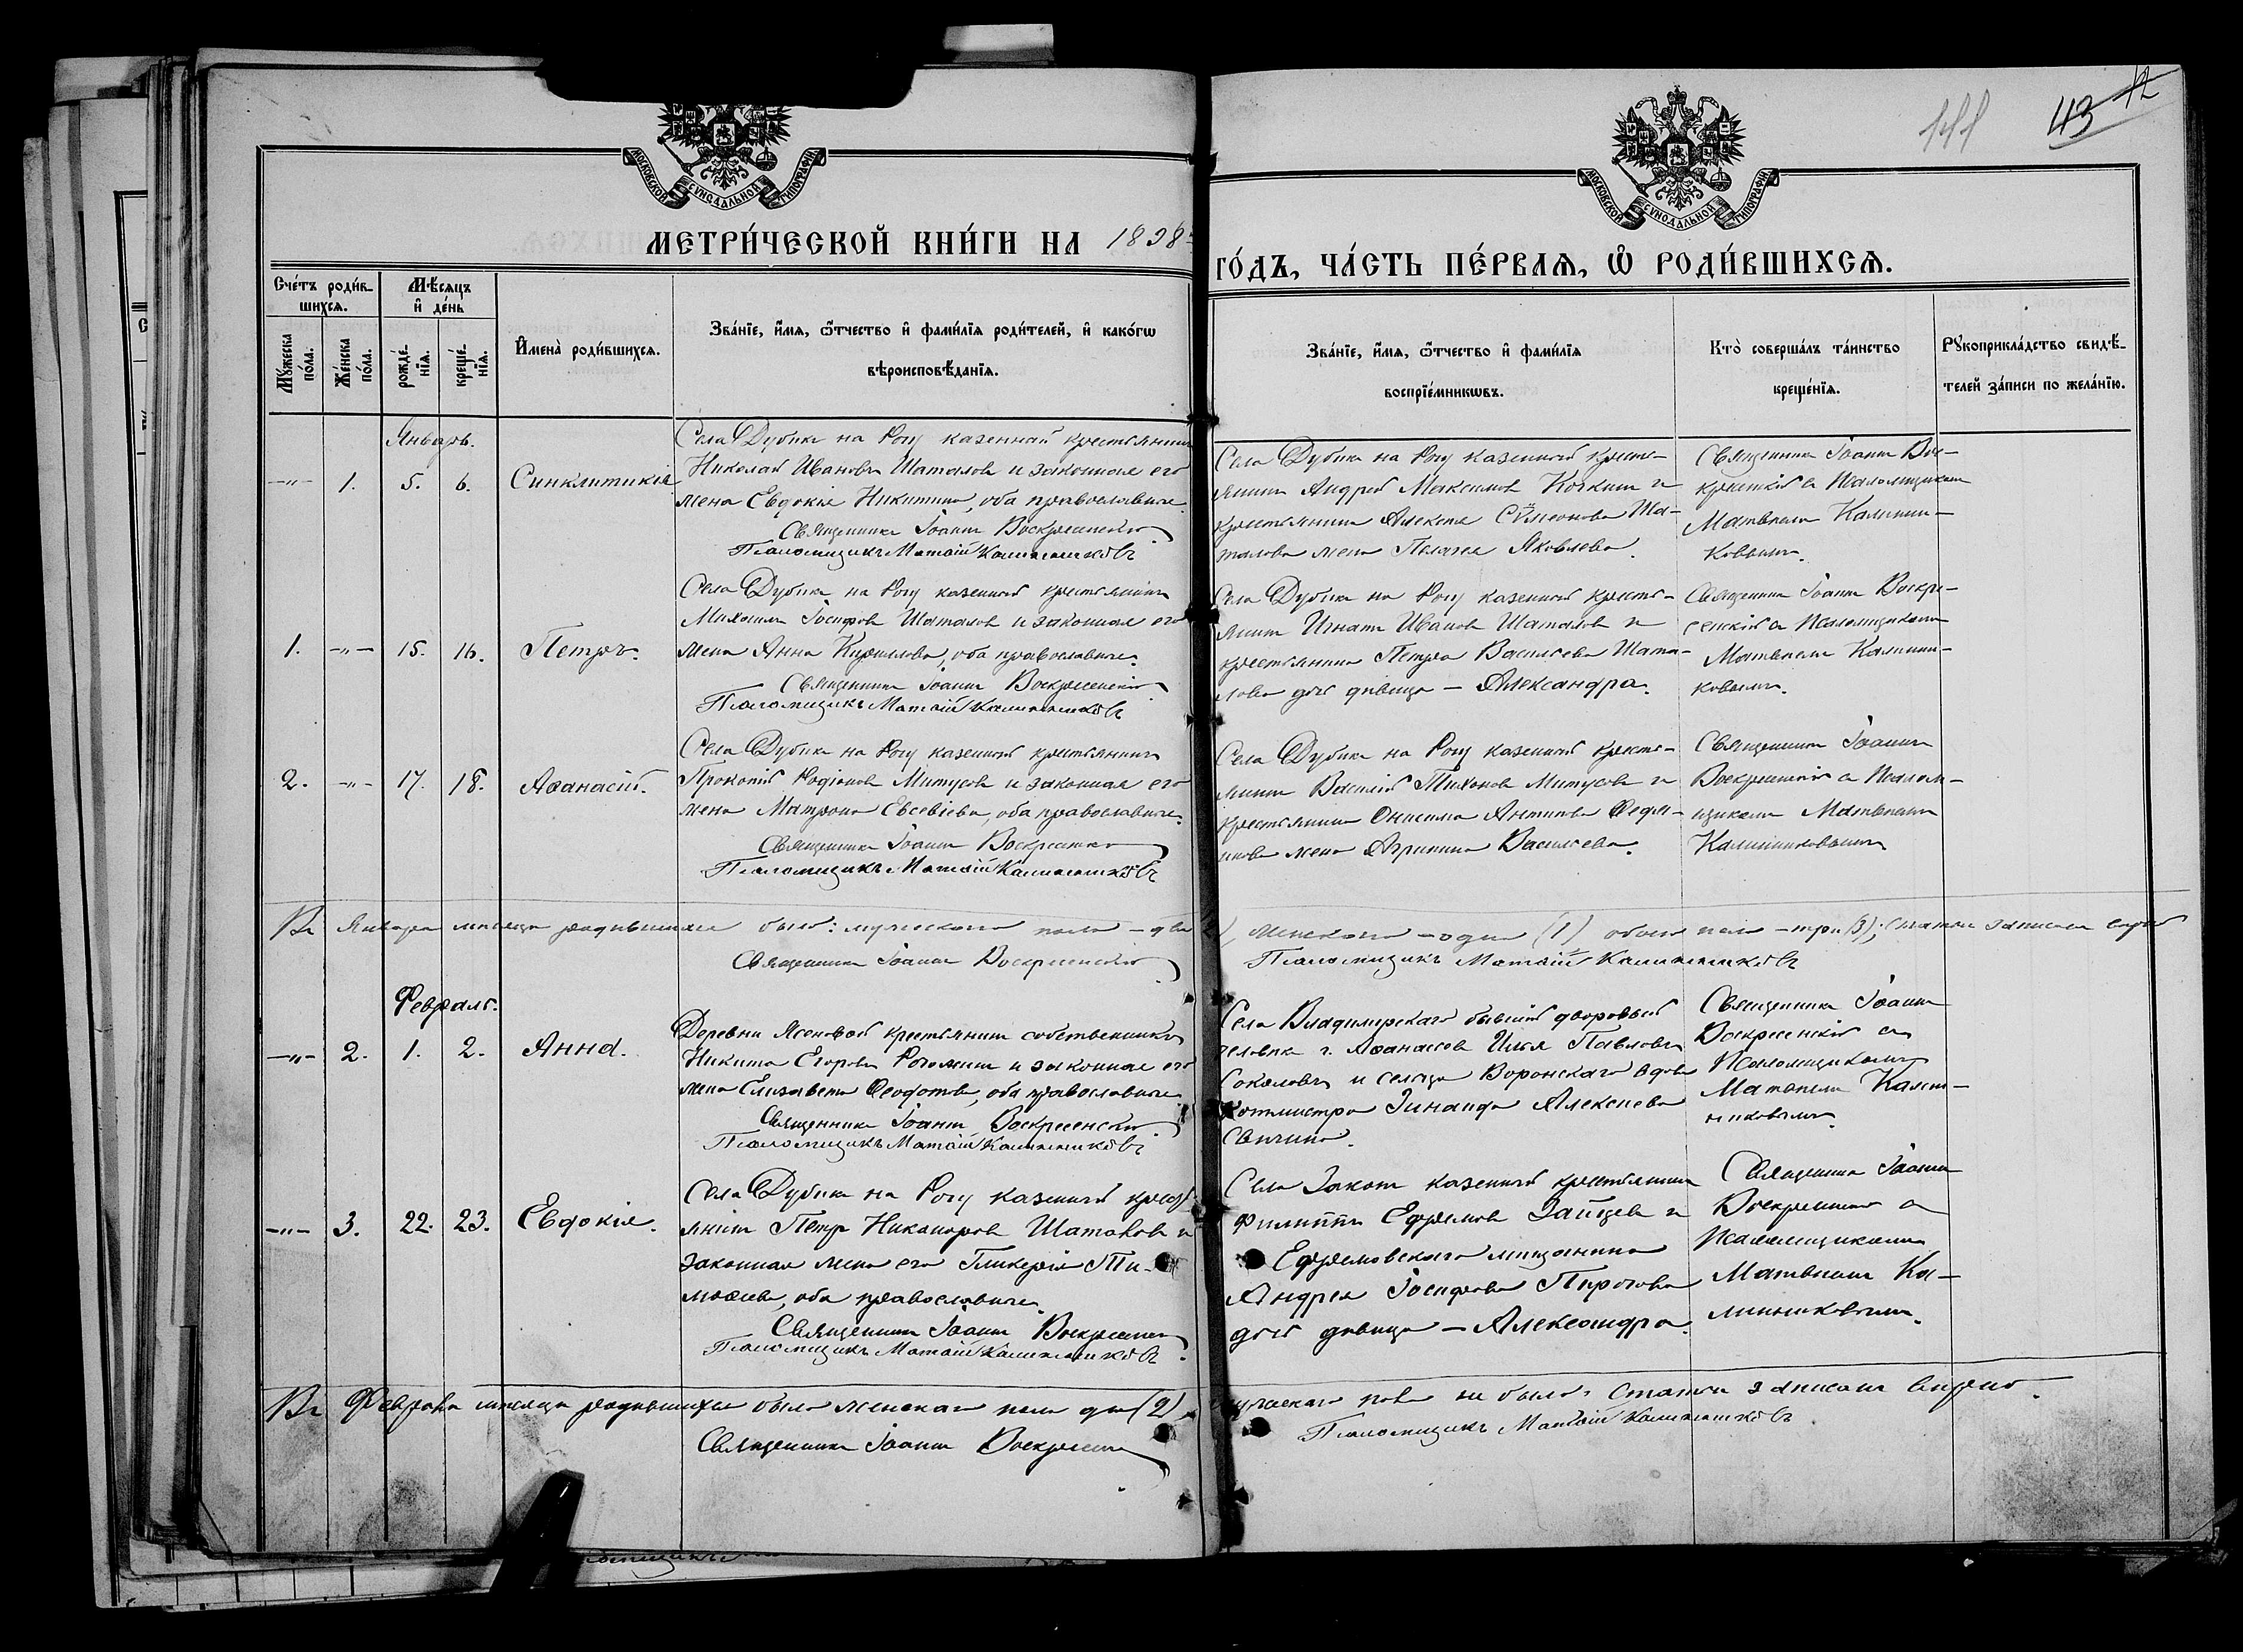 43 12
МОСКОВСКОЙ СѴНОДАЛЬНОЙ ТИПОГРАФІИ
МОСКОВСКОЙ СѴНОДАЛЬНОЙ ТИПОГРАФІИ
МЕТРИ́ЧЕСКОЙ КНИ́ГИ НА 1898
ГО́ДЪ, ЧА́СТЬ ПЕ́РВАѦ, Ѡ҆ РОДИ́ВШИХСѦ.
Сче́тъ роди́в-
шихсѧ.
Мѣ́сѧцъ
и҆ де́нь
Мꙋ́жеска по́ла.
Же́нска по́ла.
рожде́-
нїѧ.
креще́-
нїѧ.
И҆мена̀ роди́вшихсѧ.
Зва́нїе, и҆́мѧ, ѻ҆́тчество и҆ фами́лїѧ роди́телей, и҆ како́гѡ
вѣроисповѣ́данїѧ.
Зва́нїе, и҆́мѧ, ѻ҆́тчество и҆ фами́лїѧ
воспрїе́мникѡвъ.
Кто̀ соверша́лъ та́инство
креще́нїѧ.
Рꙋкоприкла́дство свидѣ́-
телей за́писи по жела́нїю.
Январь.
-"- 1. 5. 6. Синклитикія
Села Дубика на Рогу казенный крестьянинъ
Николай Ивановъ Шаталовъ и законная его
жена Евдокія Никитина, оба православные.
Священникъ Іоаннъ Воскресенскій
Псаломщикъ Матѳій Калинниковъ
Села Дубика на Рогу казенный кресть-
янинъ Андрей Максимовъ Кочкинъ и
крестьянина Алексѣя Сѵмеонова Ша-
талова жена Пелагея Яковлева.
Священникъ Іоаннъ Вос-
кресенскій съ Псаломщикомъ
Матвѣемъ Калинни-
ковымъ.
1. -"- 15. 16. Петръ.
Села Дубика на Рогу казенный крестьянинъ
Михаилъ Іосифовъ Шаталовъ и законная его
жена Анна Кириллова, оба православные.
Священникъ Іоаннъ Воскресенскій
Псаломщикъ Матѳій Калинниковъ
Села Дубика на Рогу казенный кресть-
янинъ Игнатъ Ивановъ Шаталовъ и
крестьянина Петра Васильева Шата-
лова дочь дѣвица - Александра.
Священникъ Іоаннъ Воскре-
сенскій съ Псаломщикомъ
Матвѣемъ Калинни-
ковымъ.
2. -"- 17. 18. Аѳанасій.
Села Дубика на Рогу казенный крестьянинъ
Прокопій Родіоновъ Митусовъ и законная его
жена Матрона Евсевіева, оба православные.
Священникъ Іоаннъ Воскресенскій
Псаломщикъ Матѳій Калинниковъ
Села Дубика на Рогу казенный кресть-
янинъ Василій Тихоновъ Митусовъ и
крестьянина Онисима Антипова
жена Агрипина Васильева.
Священникъ Іоаннъ
Воскресенскій съ Псалом-
щикомъ Матвѣемъ
Калинниковымъ
Въ Январѣ мѣсяцѣ родившихся было: мужескаго пола - два
), женскаго - одна (1) обоего пола - три (3);
Священникъ Іоаннъ Воскресенскій
Псаломщикъ Матѳій Калинниковъ
Февраль.
-"- 2. 1. 2. Анна.
Деревни Ясеновой крестьянинъ собственникъ
Никита Егоровъ Рогожинъ и законная его
жена Елизавета Ѳеодотова, оба православные.
Священникъ Іоаннъ Воскресенскій
Псаломщикъ Матѳій Калинниковъ
Села Владимирскаго бывшій дворовый
человѣкъ г. Аѳанасова Илья Павловъ
Соколовъ и сельца Воронскаго вдова
Ротмистра Зинаида Алексѣева
Свѣчина.
Священникъ Іоаннъ
Воскресенскій съ
Псаломщикомъ
Матвѣемъ Калин-
никовымъ.
-"- 3. 22. 23. Евдокія.
Села Дубика на Рогу казенный кресть
янинъ Петръ Никаноровъ Шаталовъ и
законная жена его Гликерія Ти-
моѳеева, оба православные.
Священникъ Іоаннъ Воскресенскій
Псаломщикъ Матѳій Калинниковъ.
Села Закопъ казенный крестьянинъ
Филиппъ Ефремовъ Зайцевъ и
Ефремовскаго мѣщанина
Андрея Іосифова Пирогова
дочь дѣвица - Александра.
Священникъ Іоаннъ
Воскресенскій съ
Псаломщикомъ
Матвѣемъ Ка-
линниковымъ.
Въ Февралѣ мѣсяцѣ родившихся было женскаго пола два (2)
мужескаго пола не было. Статьи записаны вѣрно.
Священникъ Іоаннъ Воскресенскій
Псаломщикъ Матѳій Калинниковъ.